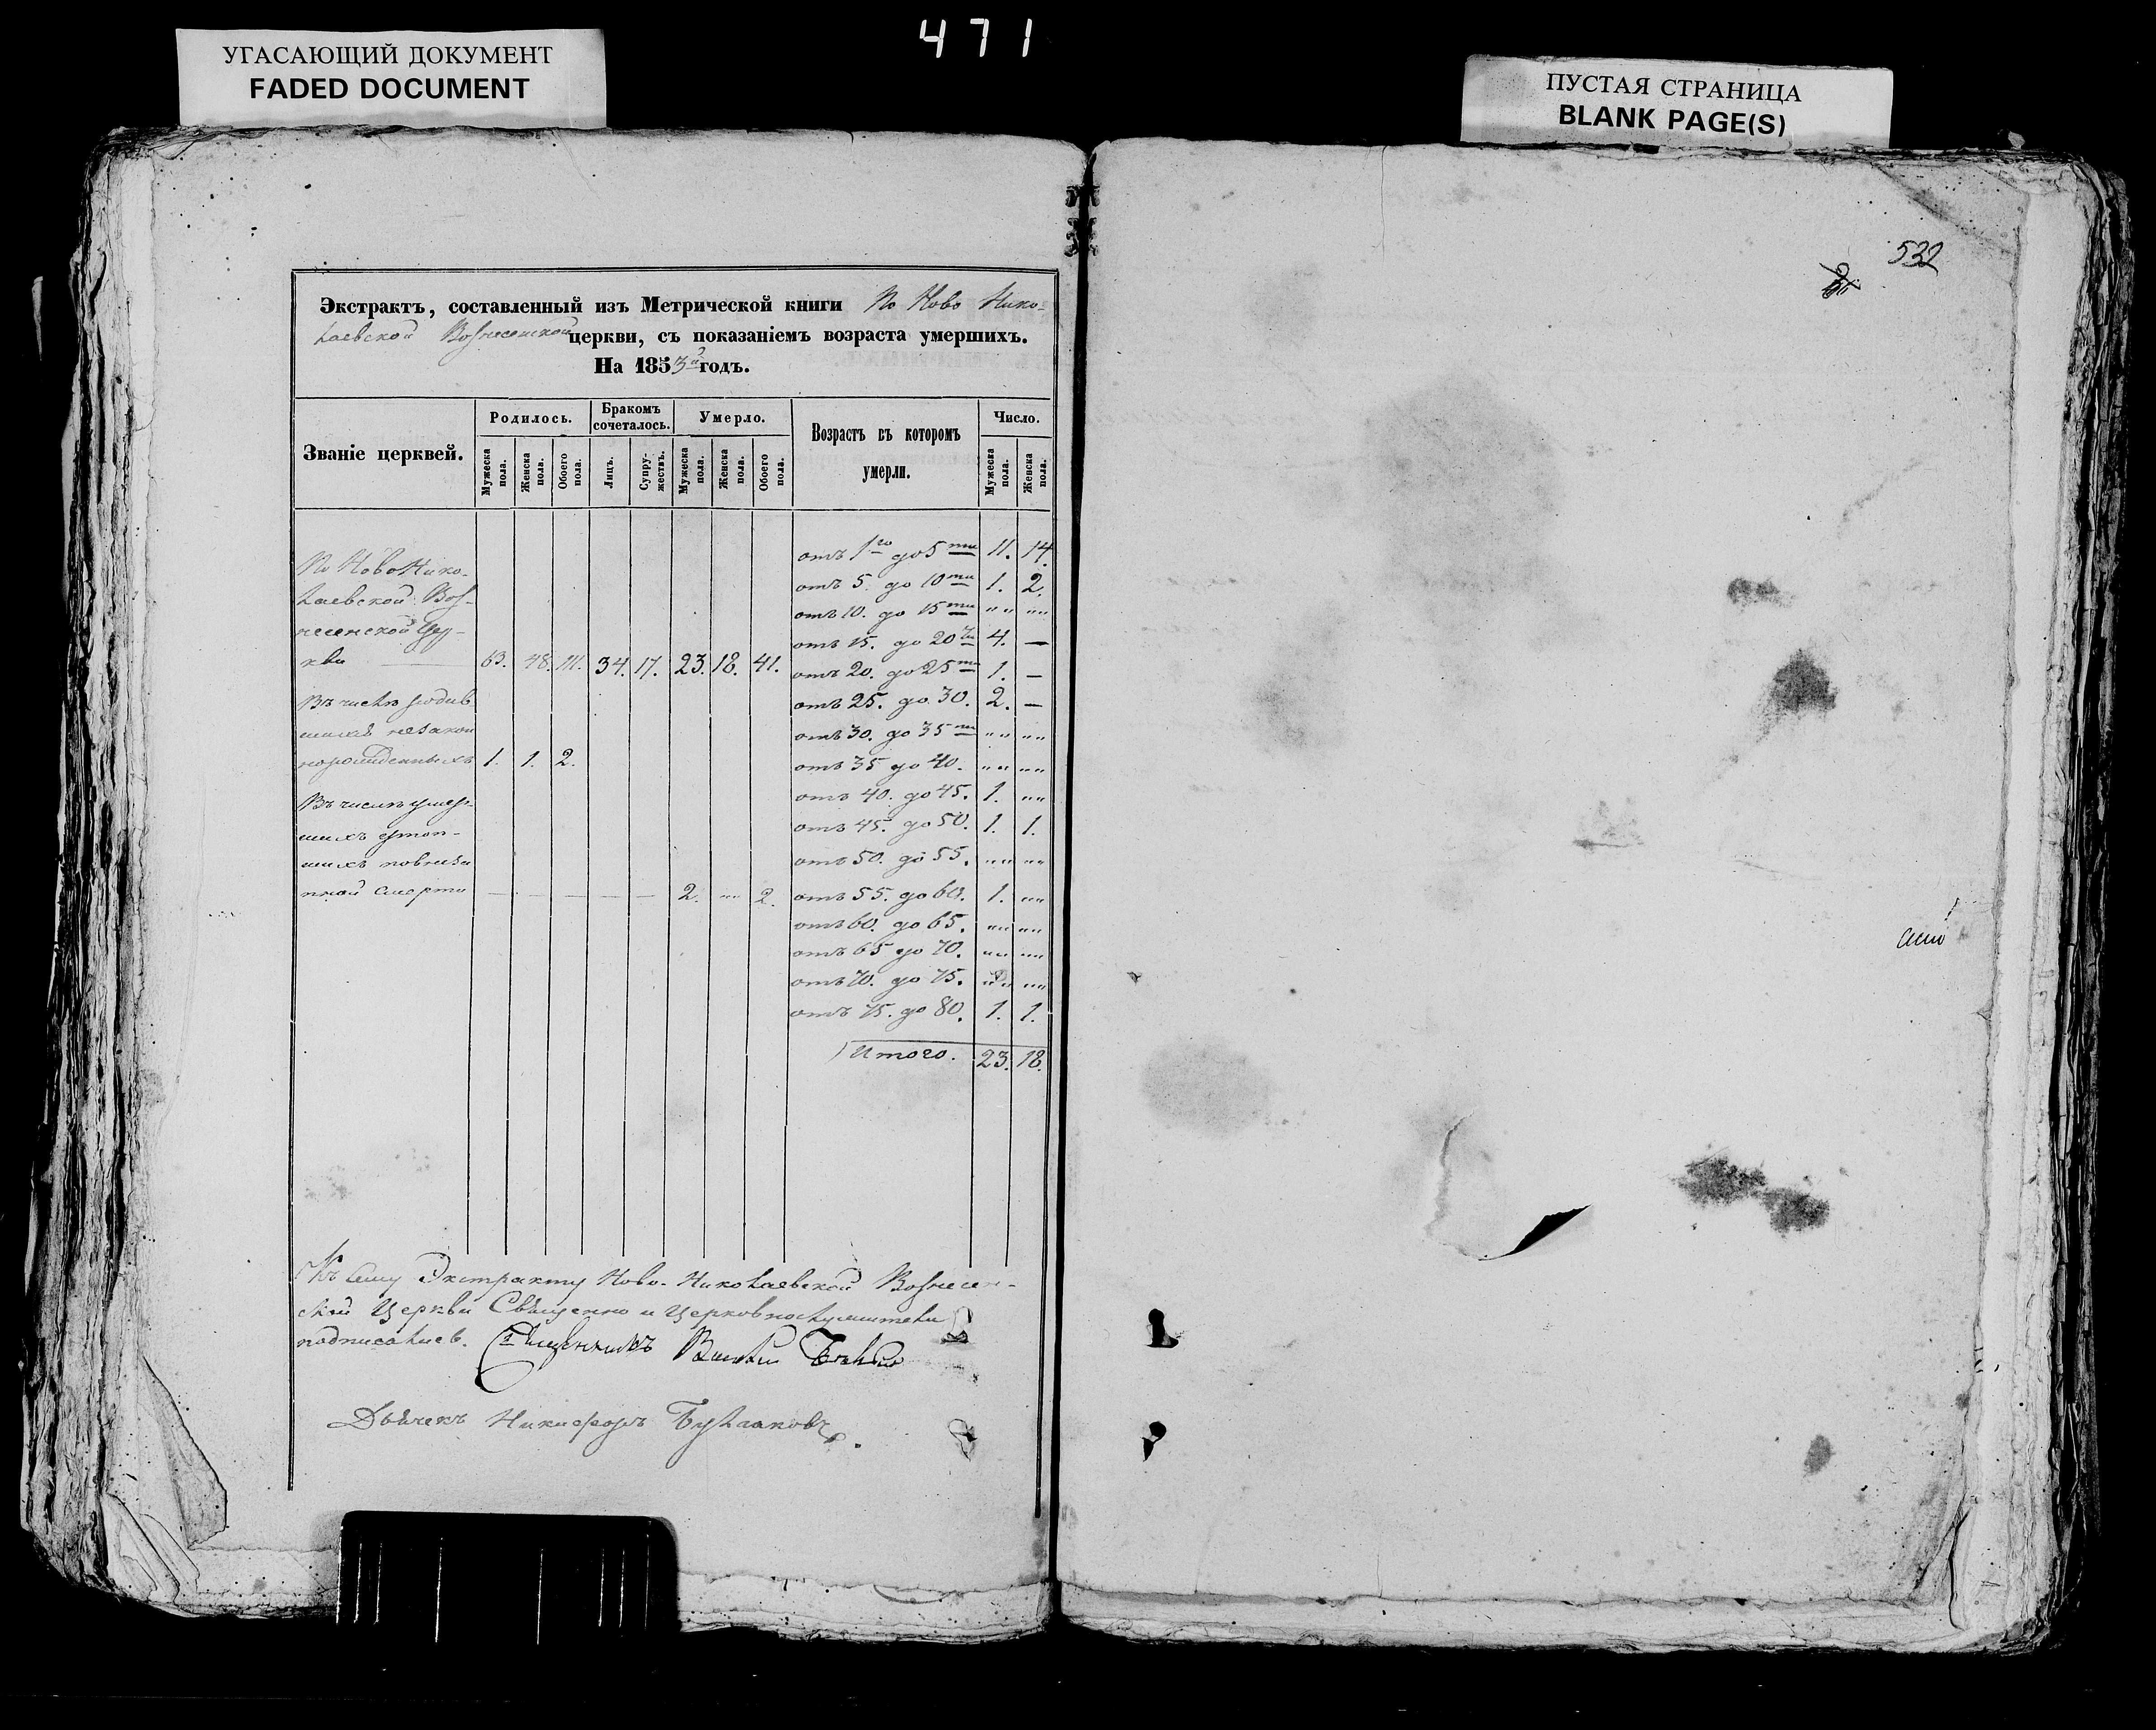 471
УГАСАЮЩИЙ ДОКУМЕНТ
FADED DOCUMENT
ПУСТАЯ СТРАНИЦА
BLANK PAGE(S)
532
Экстрактъ, составленный изъ Метрической книги По Ново Нико-
лаевской Вознесенской церкви, съ показаніемъ возраста умершихъ.
На 1853й годъ.
Званіе церквей. Родилось. Бракомъ сочеталось. Умерло. Возрастъ въ которомъ умерли. Число.
Мужеска пола. Женска пола. Обоего пола. Лицъ. Супружествъ. Мужеска пола. Женска пола. Обоего пола. Мужеска пола. Женска пола.
По Ново Нико-
лаевской Воз-
несенской Цер-
кви 63. 48. 111. 34. 17. 23. 18. 41.
Въ числѣ родив
шихъ незакон
норожденныхъ 1. 1. 2.
Въ числѣ умер-
шихъ утоп-
ших
ной смерти — — — — — 2. "" 2.
отъ 1го до 5ти 11. 14.
отъ 5. до 10ти 1. 2.
отъ 10. до 15ти "" ""
отъ 15. до 20ти 4. —
отъ 20. до 25ти 1. —
отъ 25. до 30. 2. —
отъ 30. до 35ти "" ""
отъ 35 до 40. "" ""
отъ 40. до 45. 1. ""
отъ 45. до 50. 1. 1.
отъ 50. до 55. "" ""
отъ 55. до 60. 1. ""
отъ 60. до 65. "" ""
отъ 65 до 70. "" ""
отъ 70. до 75. "" ""
отъ 75. до 80. 1. 1.
Итого. 23. 18.
Къ сему Экстракту Ново-Николаевской Вознесен-
ской Церкви Священно и Церковнослужители
подписались. Священникъ
Дьячекъ Никифоръ